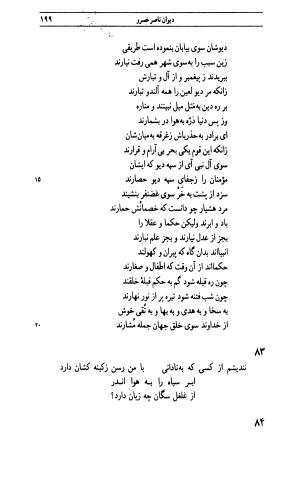 دیوان ناصر خسرو ۱۹۹
دیوشان سوی بیابان بنموده است طریقی
زین سبب را به‌سوی شهر همی رفت نیارند
ببریدند ز پیغمبر و از آل و تبارش
زانکه مر دیو لعین را همه آلندو تبارند
بر ره دین به‌مثل میل نبینند و مناره
وز پس دنیا ذرّه به‌هوا در بشمارند
ای برادر به‌حذرباش زغرقه به‌میان‌شان
زانکه این قوم یکی بحر بی آرام و قرارند
سوی آل نبی آی از سپه دیو که ایشان
مؤمنان را زجفای سپه دیو حصارند ۱۵
سزد از پشت به خر سوی غضنفر بنشیند
مرد هشیار چو دانست که خصمانش حمارند
باد و ابرند ولیکن حکما و عقلا را
بجز از عدل نیارند و بجز علم نبارند
انبیااند بدان گاه که پیران و کهولند
حکمااند از آن وقت که اطفال و صغارند
چون ره قبله شود گم به حکم قبلهٔ خلقند
چون شب فتنه شود تیره پر از نور نهارند
به سخا و به هدی و به بها و به تقی خوش
از خداوند سوی خلق جهان جمله مشارند ۲۰
۸۳
نندیشم از کسی که به‌نادانی با من رسن زکینه کشان دارد
ابر سیاه را به هوا اندر
از غلغل سگان چه زیان دارد؟
۸۴